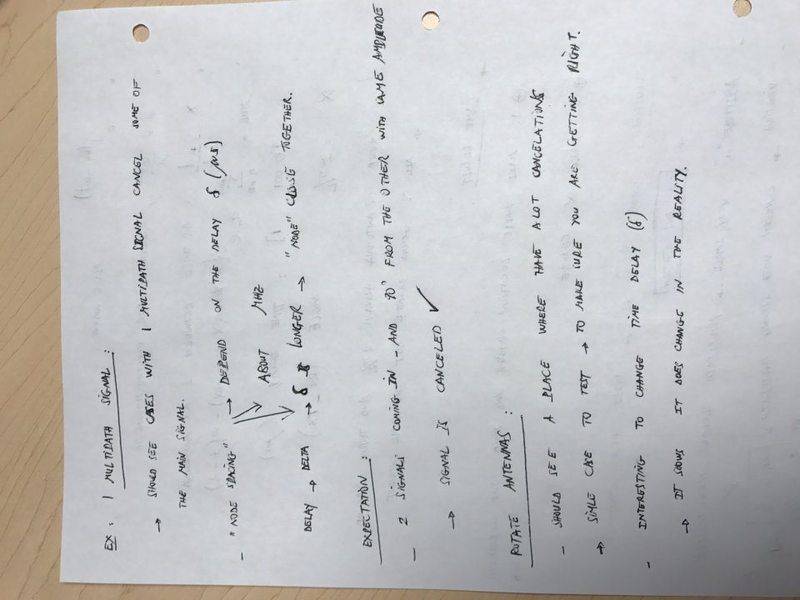 EX: 1 MULTIPATH SIGNAL:
→ SHOULD SEE CASES WITH 1 MULTIPATH SIGNAL CANCEL SOME OF
THE MAIN SIGNAL.
- "NODE SPACING" → DEPEND ON THE DELAY δ (µs)
ABOUT MHZ
DELAY → DELTA → δ IS LONGER → "NODE" CLOSE TOGETHER.
EXPECTATION:
- 2 SIGNALS COMING IN - AND 90° FROM THE OTHER WITH SAME AMPLITUDE
→ SIGNAL IS CANCELED ✓
ROTATE ANTENNAS:
- SHOULD SEE A PLACE WHERE HAVE A LOT CANCELATIONS
→ SIMLE CASE TO TEST → TO MAKE SURE YOU ARE GETTING RIGHT.
- INTERESTING TO CHANGE TIME DELAY (δ)
→ IT SHOWS IT DOES CHANGE IN THE REALITY.